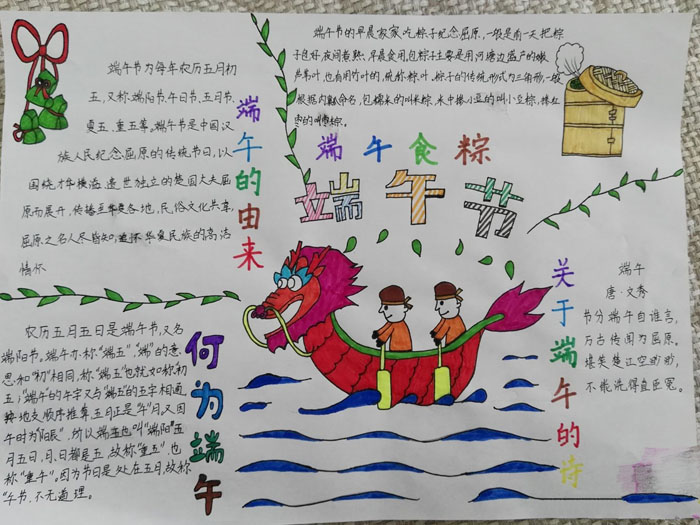 端午节为每年农历五月初
五，又称端阳节、午日节、五月节、
夏五、重五等。端午节是中国汉
族人民纪念屈原的传统节日，以
围绕才华横溢、遗世独立的楚国大夫屈
原而展开，传播至各地，民俗文化共享，
屈原之名人尽皆知，华夏民族的高洁
情怀
端午的由来
端午节的早晨家家吃粽子纪念屈原，一般是前一天把粽
子包好，夜间煮熟，早晨食用，包粽子主要是用河塘边盛产的嫩
芦苇叶，也有用竹叶的，统称粽叶，粽子的传统形式为三角形，一般
根据内瓤命名，包糯米的叫米粽，米中掺小豆的叫小豆粽，掺红
枣的叫枣粽。
端午食粽
端午节
关于端午的诗
端午
唐·文秀
节分端午自谁言，
万古传闻为屈原。
堪笑楚江空渺渺，
不能洗得直臣冤。
何为端午
农历五月五日是端午节，又名
端阳节，端午亦称“端五”，“端”的意
思和“初”相同，称“端五”也就如称初
五；“端午的午字又与“端五”的五字相通
按地支顺序推算，五月正是“午”月，又因
午时为“阳辰”，所以端五也叫“端阳”五
月五日，月、日都是五，故称“重五”，也
称“重午”。因为节日是处在五月，故称
“午节，不无道理。